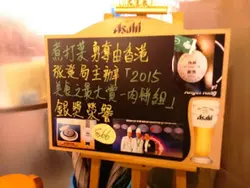 Asahi
煮打菜 勇奪由香港
旅遊局主辦「2015
美食之最大賞-肉餅組」
銀獎榮譽
$66
Asahi